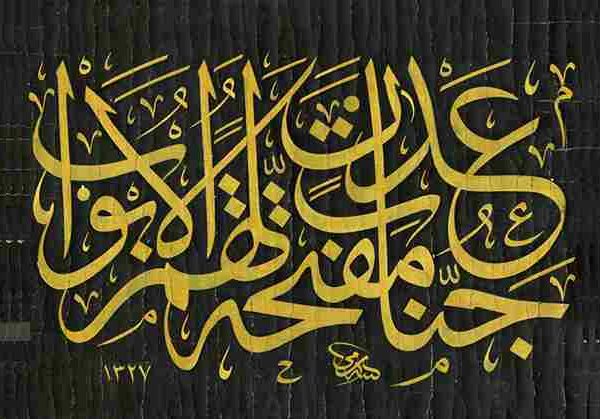 جنّات عدن مفتّحة لهم الأبواب
١٣٢٧